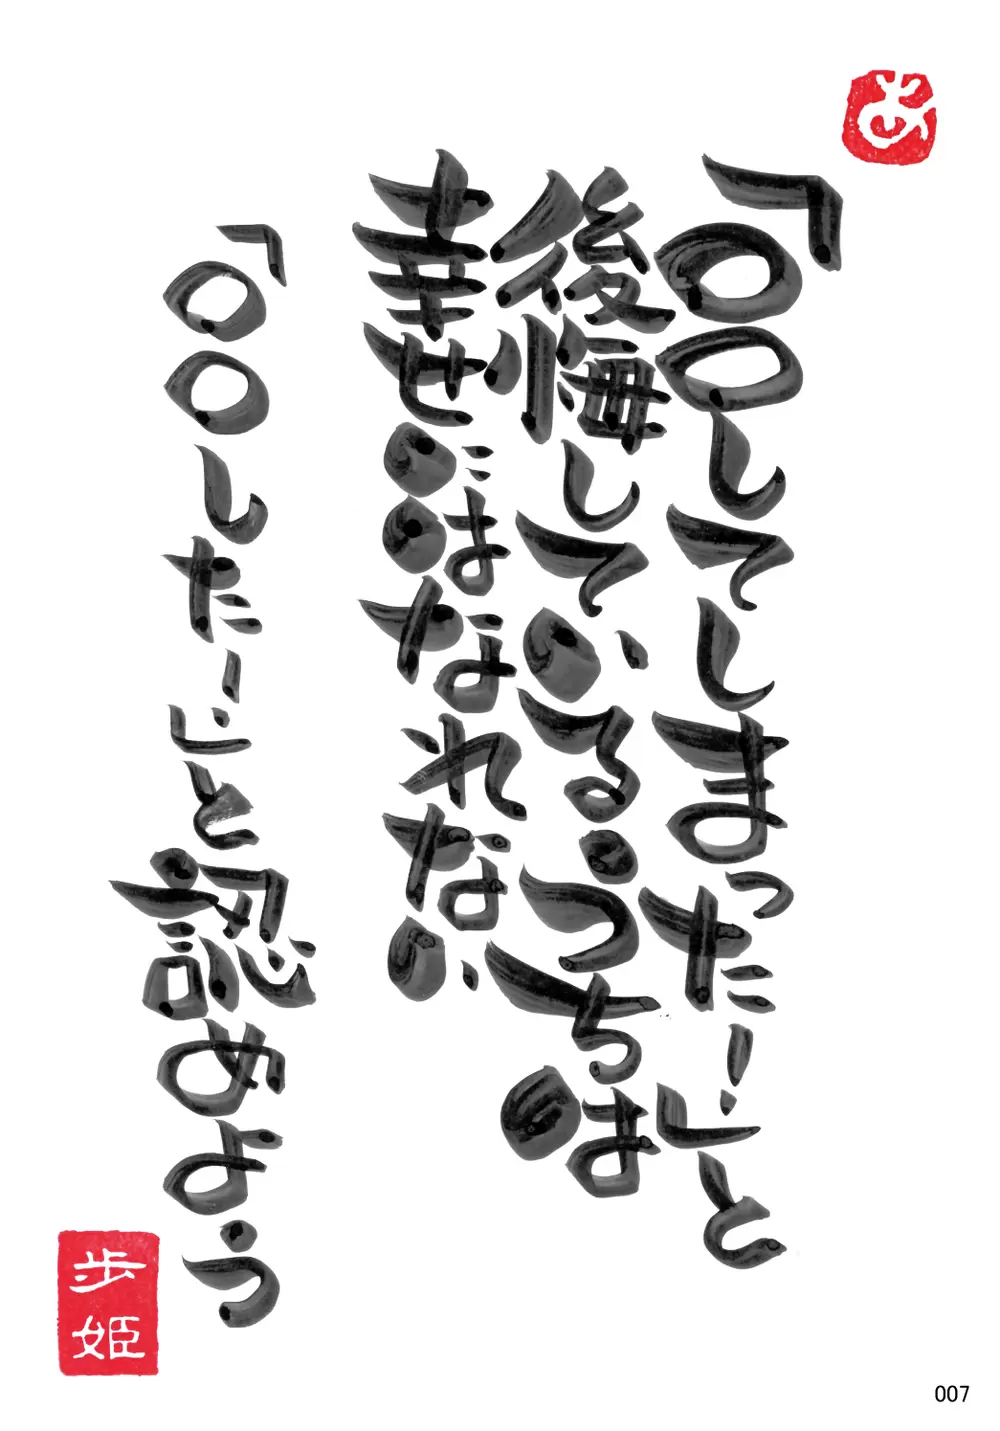 あ
「○○してしまった!」と
後悔しているうちは
幸せにはなれない
「○○した!」と認めよう
歩姫
007